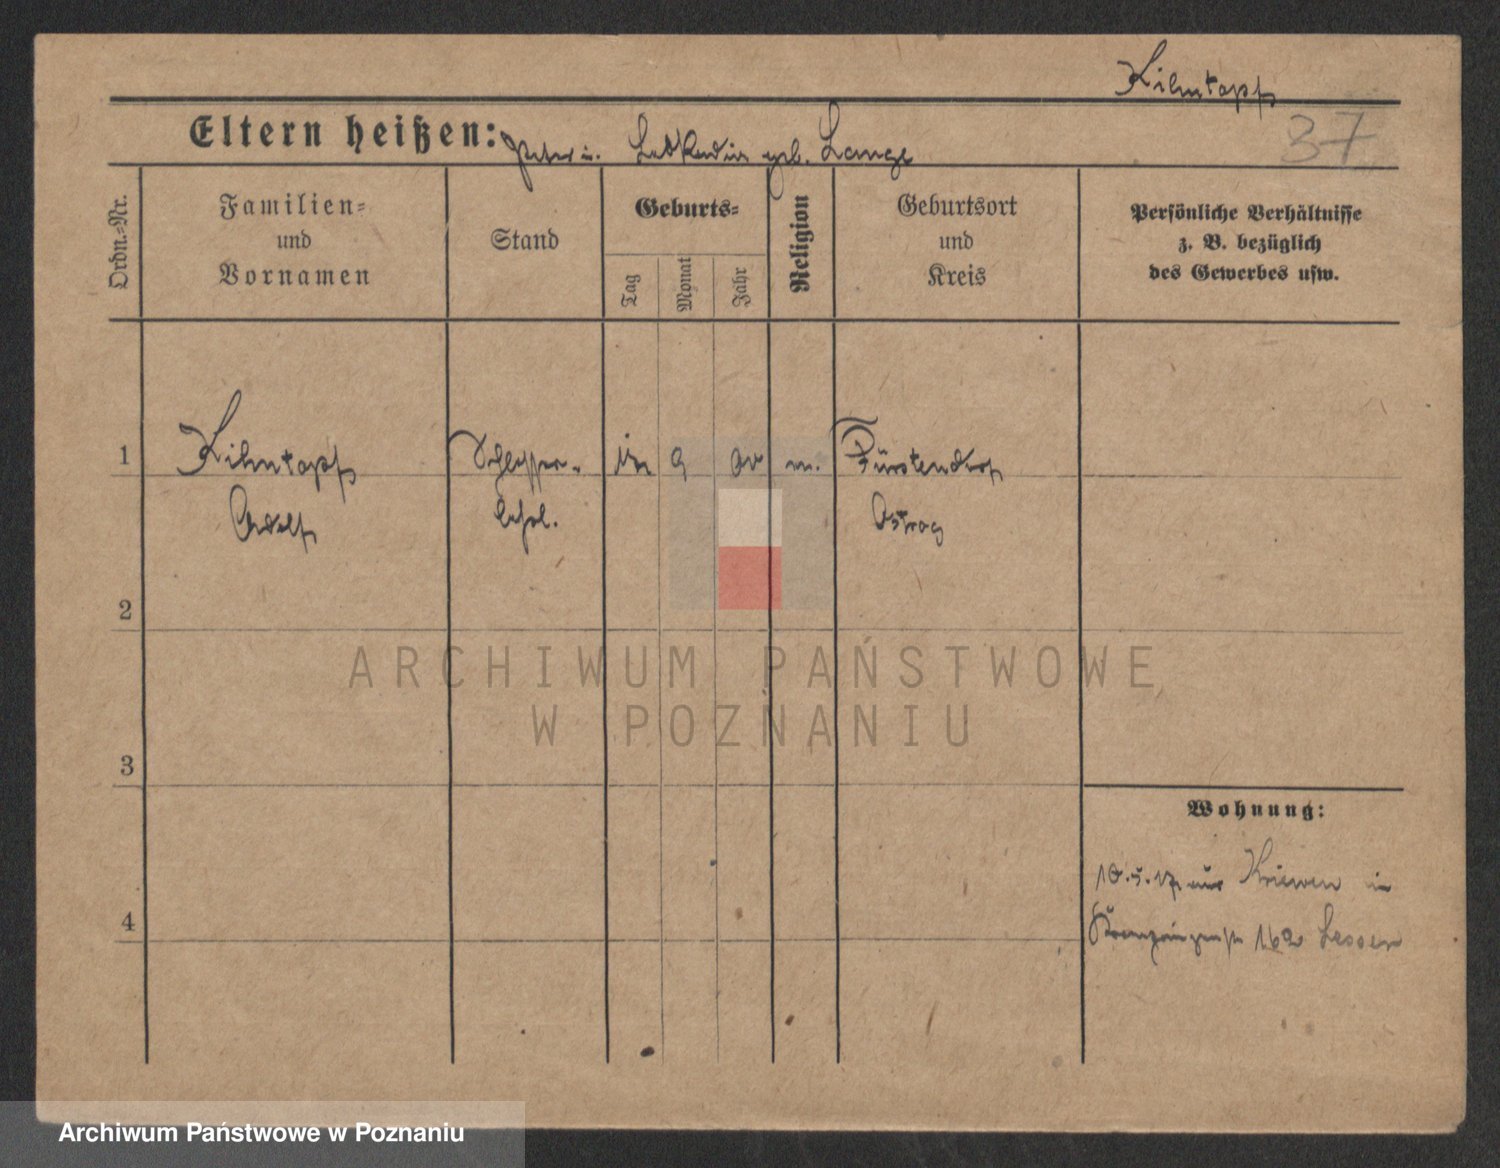 Kilmtopf
37
Eltern heißen: Peter u. geb. Lange
Ordn.-Nr.
Familien-
und
Vornamen
Stand
Geburts-
Tag
Monat
Jahr
Religion
Geburtsort
und
Kreis
Persönliche Verhältnisse
z. B. bezüglich
des Gewerbes usw.
1
Kilmtopf
Adolf
9
Fürstendorf
Ostrog
2
3
4
Wohnung:
aus Kriewen in
162 Lesser
ARCHIWUM PAŃSTWOWE
W POZNANIU
Archiwum Państwowe w Poznaniu